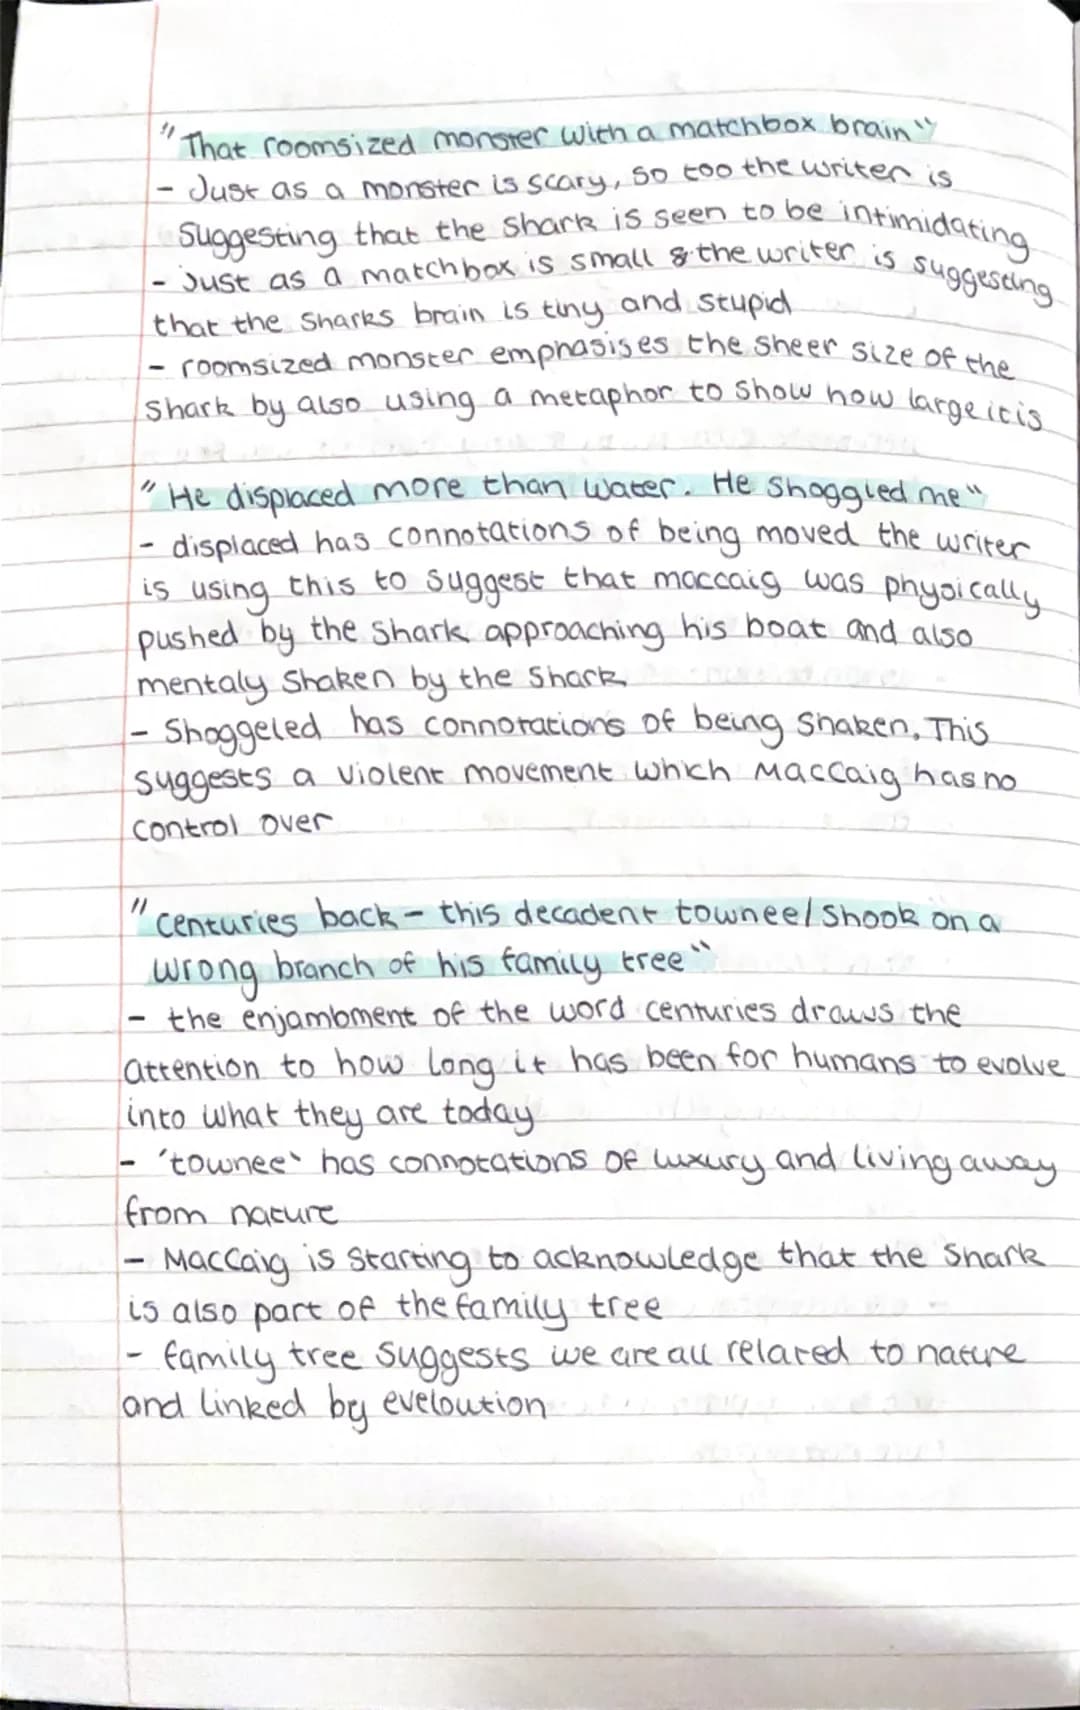 "That roomsized monster with a matchbox brain"
- Just as a monster is scary, so too the writer is
Suggesting that the shark is seen to be intimidating
- Just as a matchbox is small & the writer is suggesting
that the Sharks brain is tiny and stupid
- roomsized monster emphasises the sheer size of the
Shark by also using a metaphor to show how large it is
"He displaced more than water. He Shoggled me"
- displaced has connotations of being moved the writer
is using this to suggest that maccaig was physically
pushed by the shark approaching his boat and also
mentaly shaken by the Shark
- Shoggeled has connotations of being shaken, This
suggests a violent movement which MacCaig has no
control over
"Centuries back - this decadent townee/ Shook on a
wrong branch of his family tree"
- the enjambment of the word centuries draws the
attention to how long it has been for humans to evolve
into what they are today
- 'townee' has connotations of luxury and living away
from nature
- MacCaig is Starting to acknowledge that the Shark
is also part of the family tree
- family tree suggests we are all related to nature
and linked by eveloution